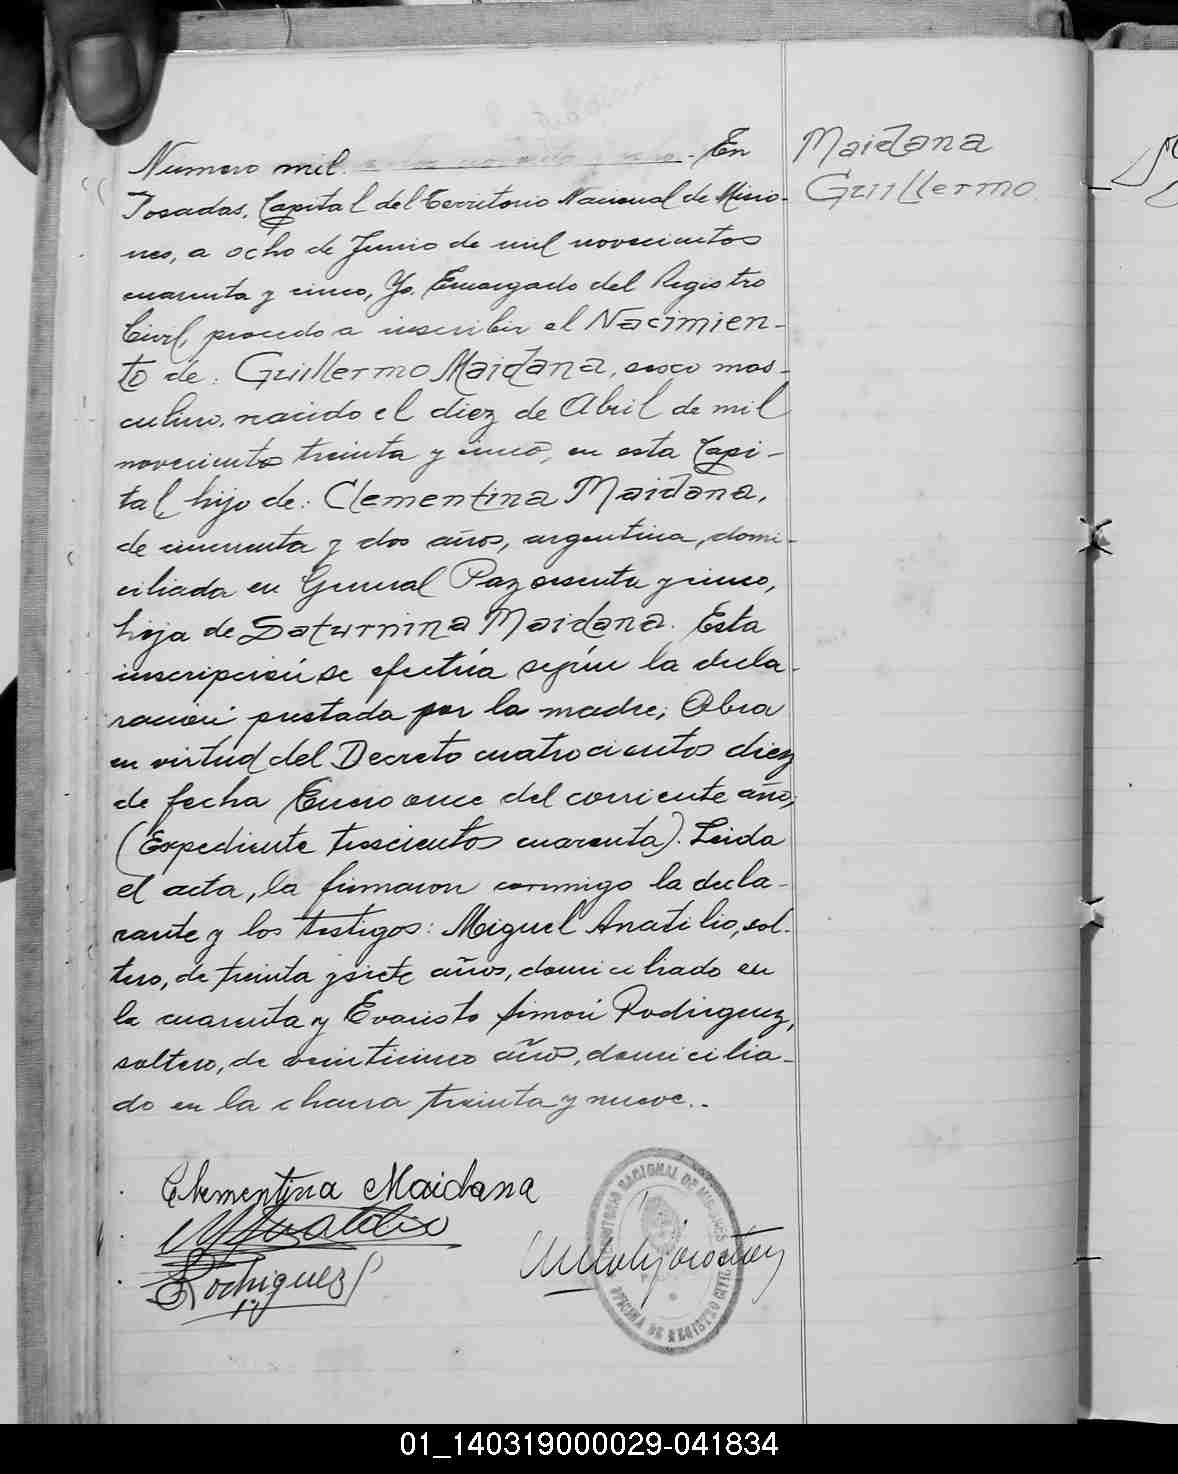 Numero mil. En
Posadas, Capital del Territorio Nacional de Misio-
nes, a ocho de Junio de mil novecientos
cuarenta y cinco, Yo, Encargado del Registro
Civil, procedo a inscribir el Nacimien-
to de: Guillermo Maidana, sexo mas-
culino, nacido el diez de Abril de mil
novecientos treinta y cinco, en esta Capi-
tal, hijo de: Clementina Maidana,
de cincuenta y dos años, argentina, domi-
ciliada en General Paz sesenta y cinco,
hija de Saturnina Maidana. Esta
inscripción se efectúa según la decla-
ración prestada por la madre; Obra
en virtud del Decreto cuatrocientos diez
de fecha Enero once del corriente año,
(Expediente trescientos cuarenta). Leida
el acta, la firmaron conmigo la decla-
rante y los testigos: Miguel Anatilio, sol-
tero, de treinta y siete años, domiciliado en
la cuarenta y Evaristo Simón Rodriguez,
soltero, de veinticinco años, domicilia-
do en la chacra treinta y nueve..
Maidana
Guillermo
Clementina Maidana
Rodriguez
TERRITORIO NACIONAL DE MISIONES
OFICINA DE REGISTRO CIVIL
01_140319000029-041834